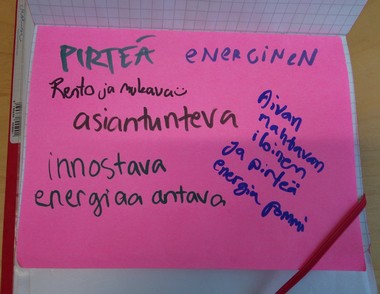 PIRTEÄ
ENERGINEN
Rento ja mukava
asiantunteva
innostava
energiaa antava
Aivan
mahtavan
iloinen
ja pirteä
energia pommi